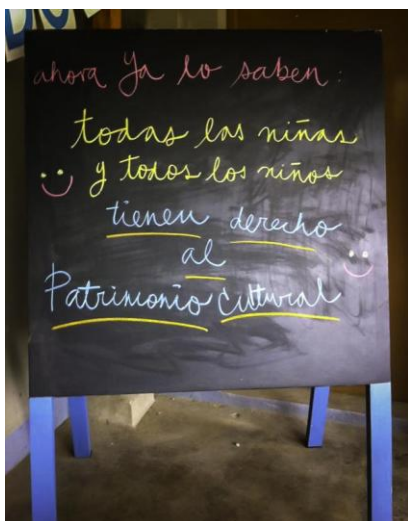 ahora Ya lo saben:
todas las niñas
y todos los niños
tienen derecho
al
Patrimonio Cultural